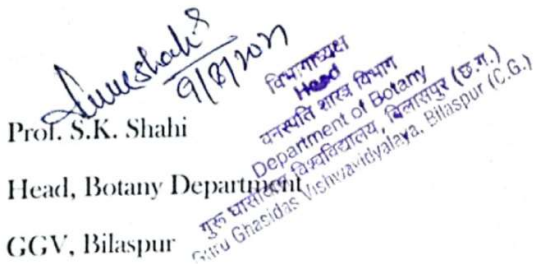 9/8/2021
विभागाध्यक्ष
Head
वनस्पति शास्त्र विभाग
Department of Botany
गुरू घासीदास विश्वविद्यालय, बिलासपुर (छ.ग.)
Guru Ghasidas Vishwavidyalaya, Bilaspur (C.G.)
Prof. S.K. Shahi
Head, Botany Department
GGV, Bilaspur